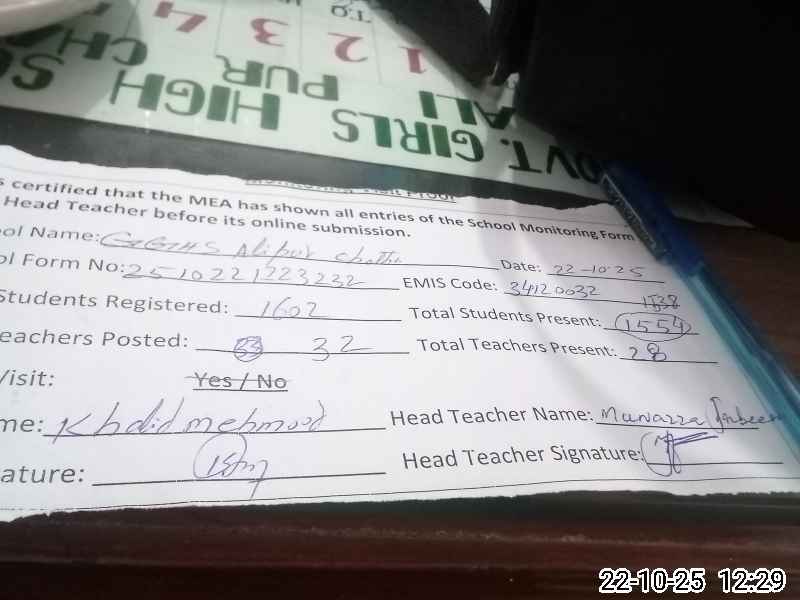 1 2 3 4
GOVT. GIRLS HIGH SC
ALI PUR CHA
Monitoring Visit Proof
s certified that the MEA has shown all entries of the School Monitoring Form
Head Teacher before its online submission.
ool Name: GGHS Alipur Chatha Date: 22-10-25
ol Form No: 2510221223232 EMIS Code: 34120032
Students Registered: 1602 Total Students Present: 1554 1538
eachers Posted: 33 32 Total Teachers Present: 28
Visit: Yes / No
me: Khalid mehmood Head Teacher Name: Munazza
ature: Head Teacher Signature:
22-10-25 12:29